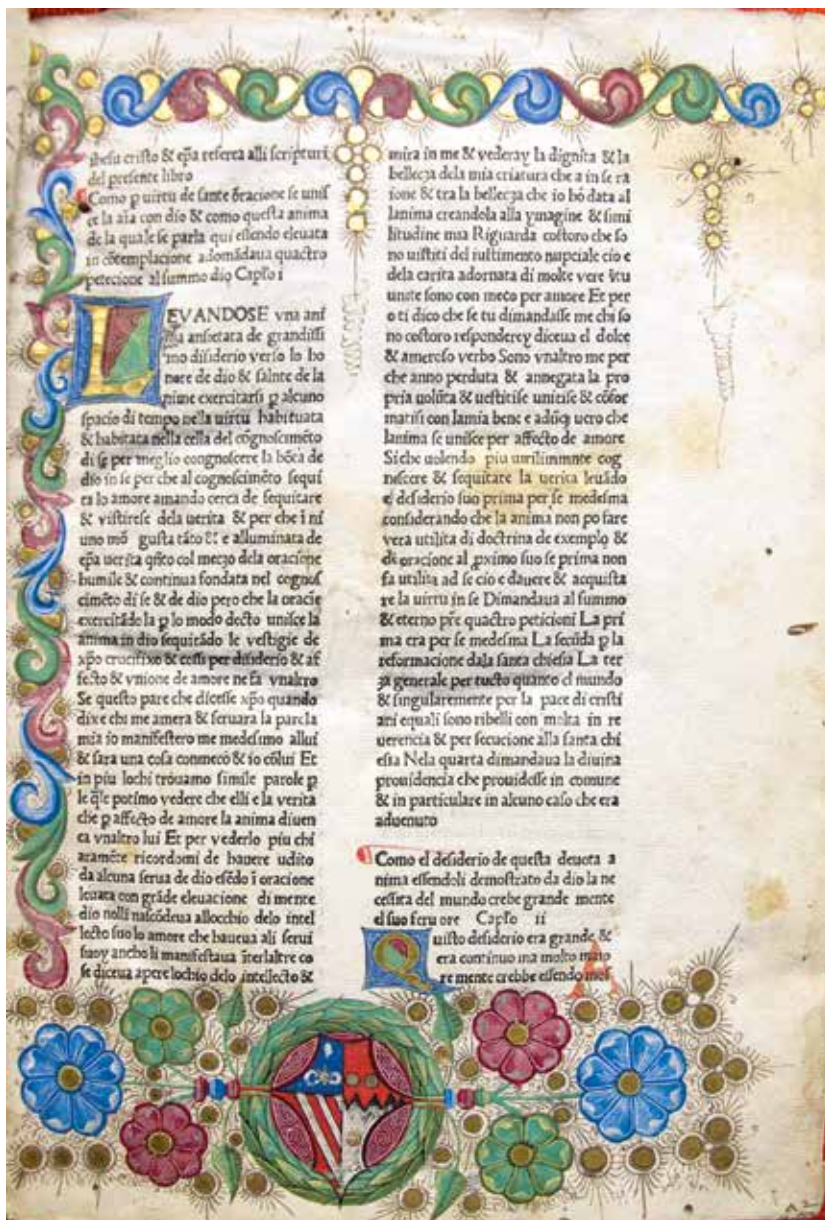 ihesu cristo & eṗa referca alli scripturi
del presente libro
Como p uirtu de sante ōracione se unis
ce la aīa con dio & como questa anima
de la quale se parla qui essendo eleuata
in cōtemplacione adomādaua quactro
petecione al summo dio Capſo i
LEVANDOSE vna ani
ma ansietata de grandissi
mo disiderio verso lo ho
nore de dio & salute de la
nime exercitarsi p alcuno
spacio di tempo nella uirtu habituata
& habitata nella cella del cōgnoscimēto
di se per meglio congnoscere la bōca de
dio in se per che al cognoscimēto sequi
ra lo amore amando cerca de sequitare
& vistirese dela uerita & per che ī ni
uno mō gusta tāto & e alluminata de
eṗa uerita qn̄to col mezo dela oracione
humile & continua fondata nel cognos
cimēto di se & de dio pero che la oracīe
exercitādo la p lo modo decto unisce la
anima in dio sequitādo le vestigie de
xp̄o crucifixo & cossi per disiderio & af
fecto & vnione de amore ne fa vnaltro
Se questo pare che dicesse xp̄o quando
dixe chi me amera & seruara la parola
mia io manifestero me medesimo allui
& sara una cosa conmeco & io cōlui Et
in piu lochi trouamo simile parole p
le q̄le potimo vedere che elli e la verita
che p affecto de amore la anima diuen
ca vnaltro lui Et per vederlo piu chi
aramēte ricordomi de hauere udito
da alcuna serua de dio esēdo ī oracione
leuata con grāde eleuacione di mente
dio nolli nascōdeua allocchio delo intel
lecto suo lo amore che haueua ali serui
suoy ancho li manifestaua īterlaltre co
se diceua apere lochio delo intellecto &
mira in me & vederay la dignita & la
bellecza dela mia criatura che a in se ra
ione & tra la bellecza che io hō data al
lanima creandola alla ymagine & simi
litudine mia Riguarda costoro che so
no uistiti del iustimento nupciale cio e
dela carita adornata di molte vere v̄tu
unite sono con meco per amore Et per
o ti dico che se tu dimandasse me chi so
no costoro responderey diceua el dolce
& ameroso verbo Sono vnaltro me per
che anno perduta & annegata la pro
pria uolūta & uestitise unitise & cōfor
matisi con lamia bene e adūq̄ uero che
lanima se unisce per affecto de amore
Siche uolendo piu uirilimmnte cog
noscere & sequitare la uerita leuādo
el desiderio suo prima per se medesma
considerando che la anima non po fare
vera utilita di doctrina de exemplo &
di oracione al p̱ximo suo se prima non
fa utilita ad se cio e dauere & acquista
re la uirtu in se Dimandaua al summo
& eterno pr̄e quactro peticioni La pri
ma era per se medesma La secūda p la
reformacione dala santa chiesia La ter
za generale per tucto quanto el mundo
& singularemente per la pace di cristi
ani equali sono ribelli con molta in re
uerencia & per secucione alla santa chi
esia Nela quarta dimandaua la diuina
prouidencia che prouidesse in comune
& in particulare in alcuno caso che era
aduenuto
Como el desiderio de questa deuota a
nima essendoli demostrato da dio la ne
cessita del mundo crebe grande mente
el suo feru ore Capſo ii
Quisto desiderio era grande &
era continuo ma molto maio
re mente crebbe essendo mos